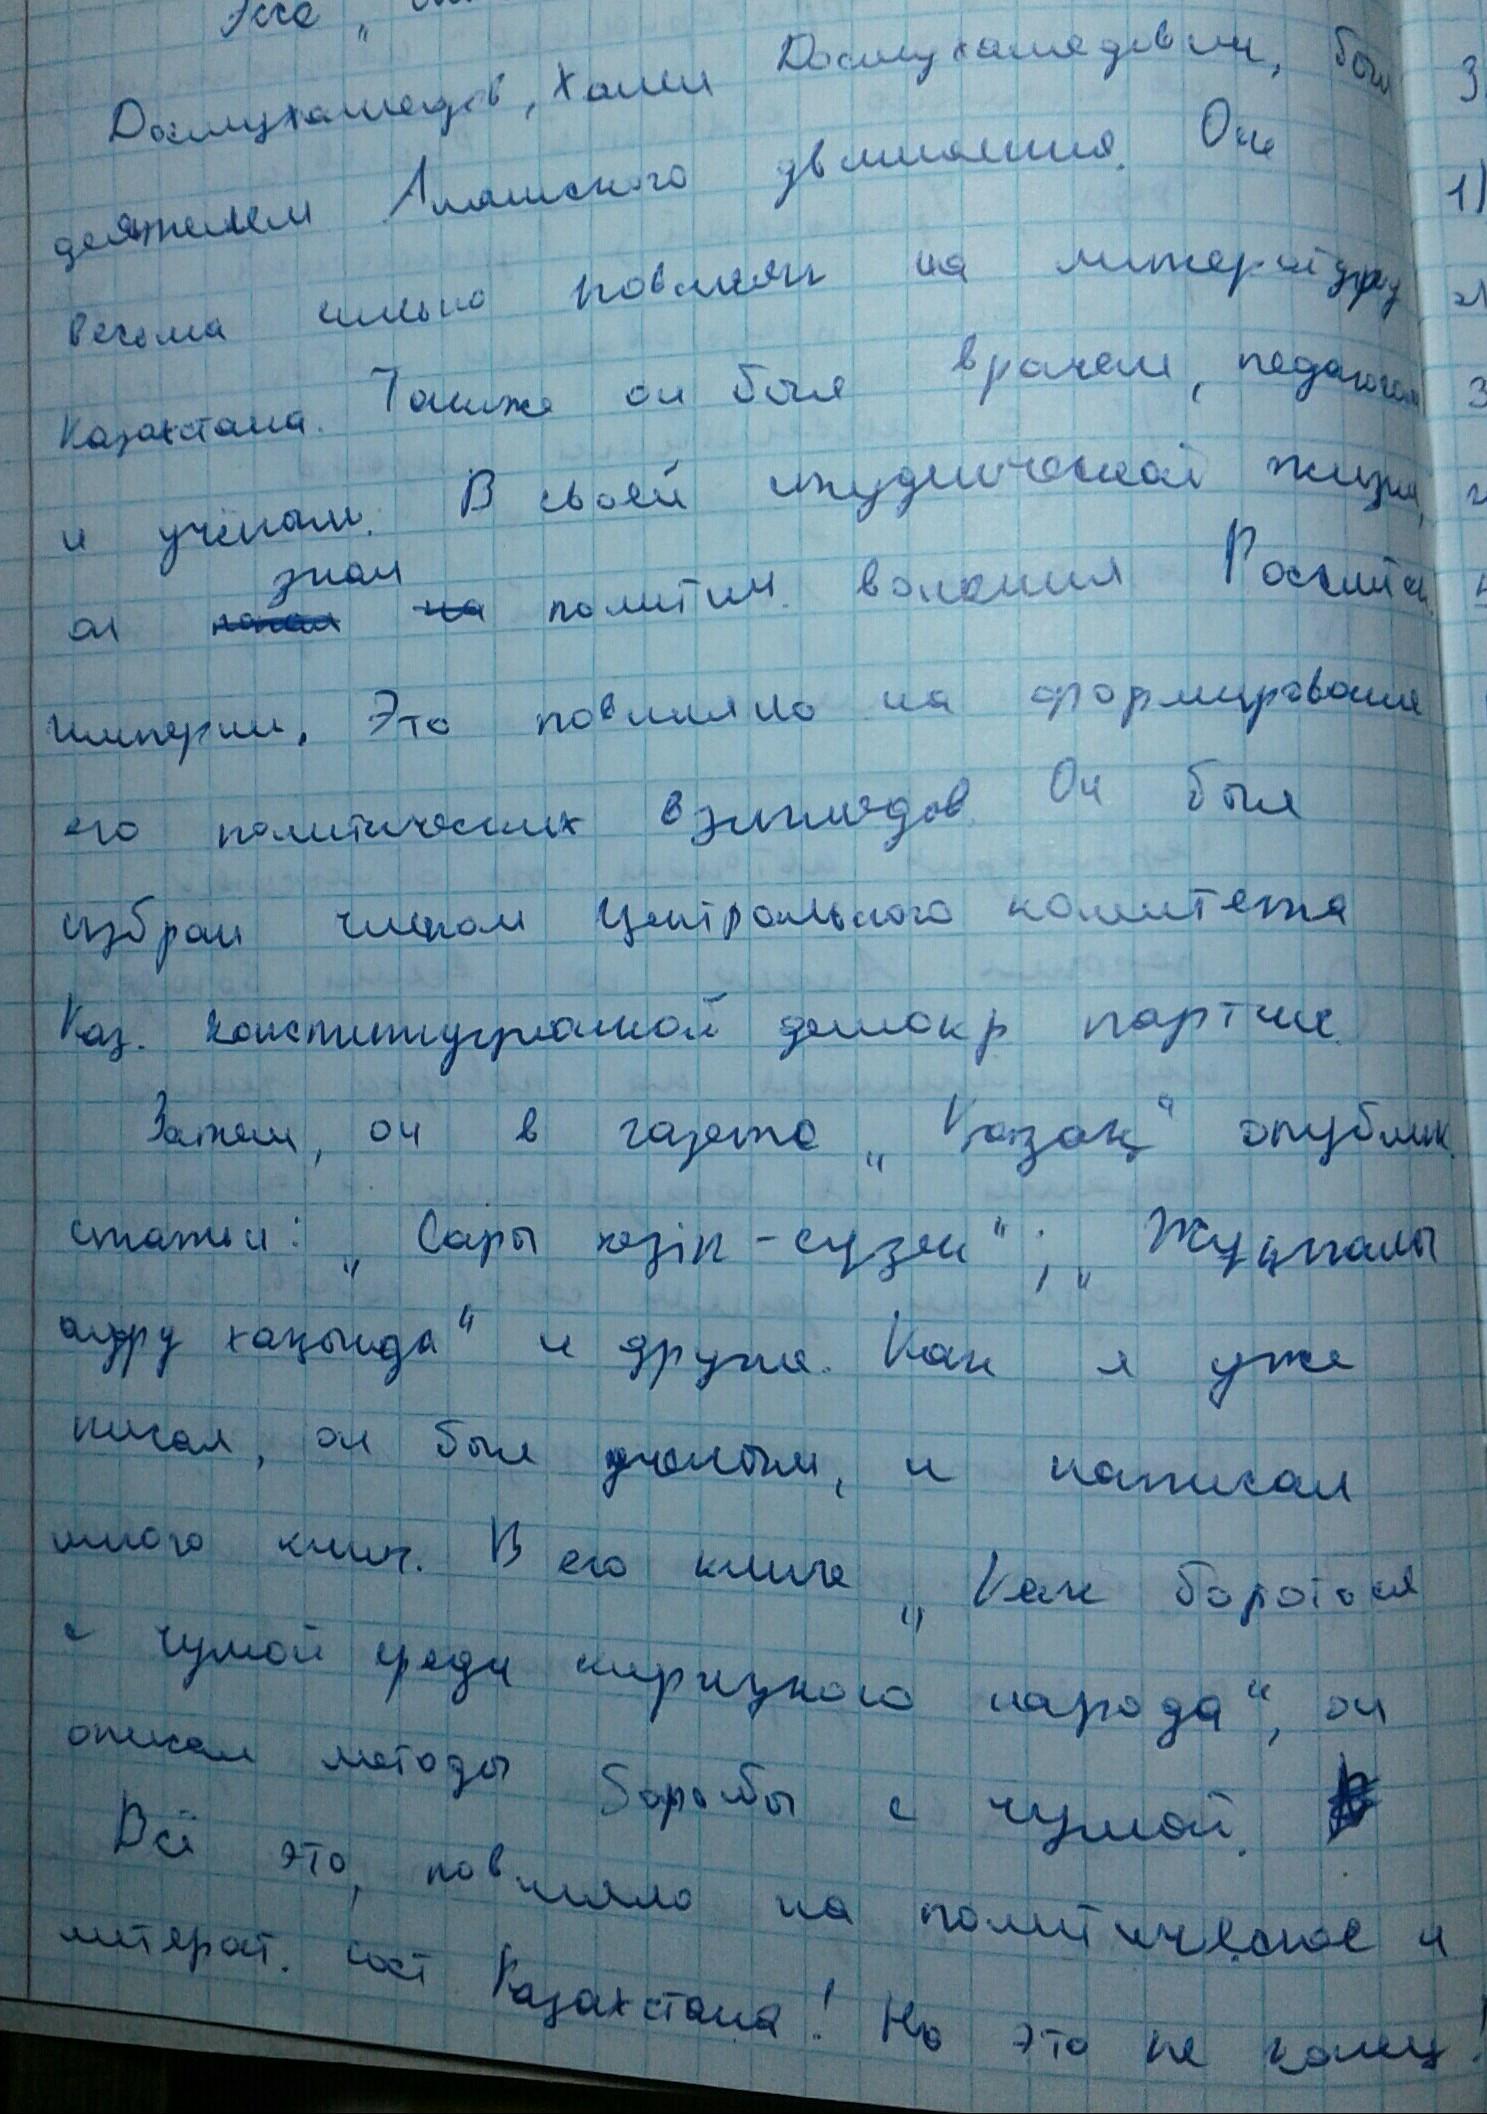 Эссе „
Досмухамедов, Халел Досмухамедович, был
деятелем Алашского движения. Он
весьма сильно повлиял на литературу
Казахстана. Также он был врачем, педагогом
и учёным. В своей студенческой жизни,
он знал политич. волнения Российск.
империи. Это повлияло на формирование
его политических взглядов. Он был
избран членом Центрального комитета
Каз. конституционной демокр партии.
Затем, он в газете „Қазақ“ опублик.
статьи: „Сары кезік-сүзек“; „Жұқпалы
ауру хақында“ и другие. Как я уже
писал, он был ученым, и написал
много книг. В его книге „Как бороться
с чумой среди киргизкого народа“, он
описал методы борьбы с чумой.
Всё это, повлияло на политическое и
литерат. сост Казахстана! Но это не конец!
3
1)
2)
3